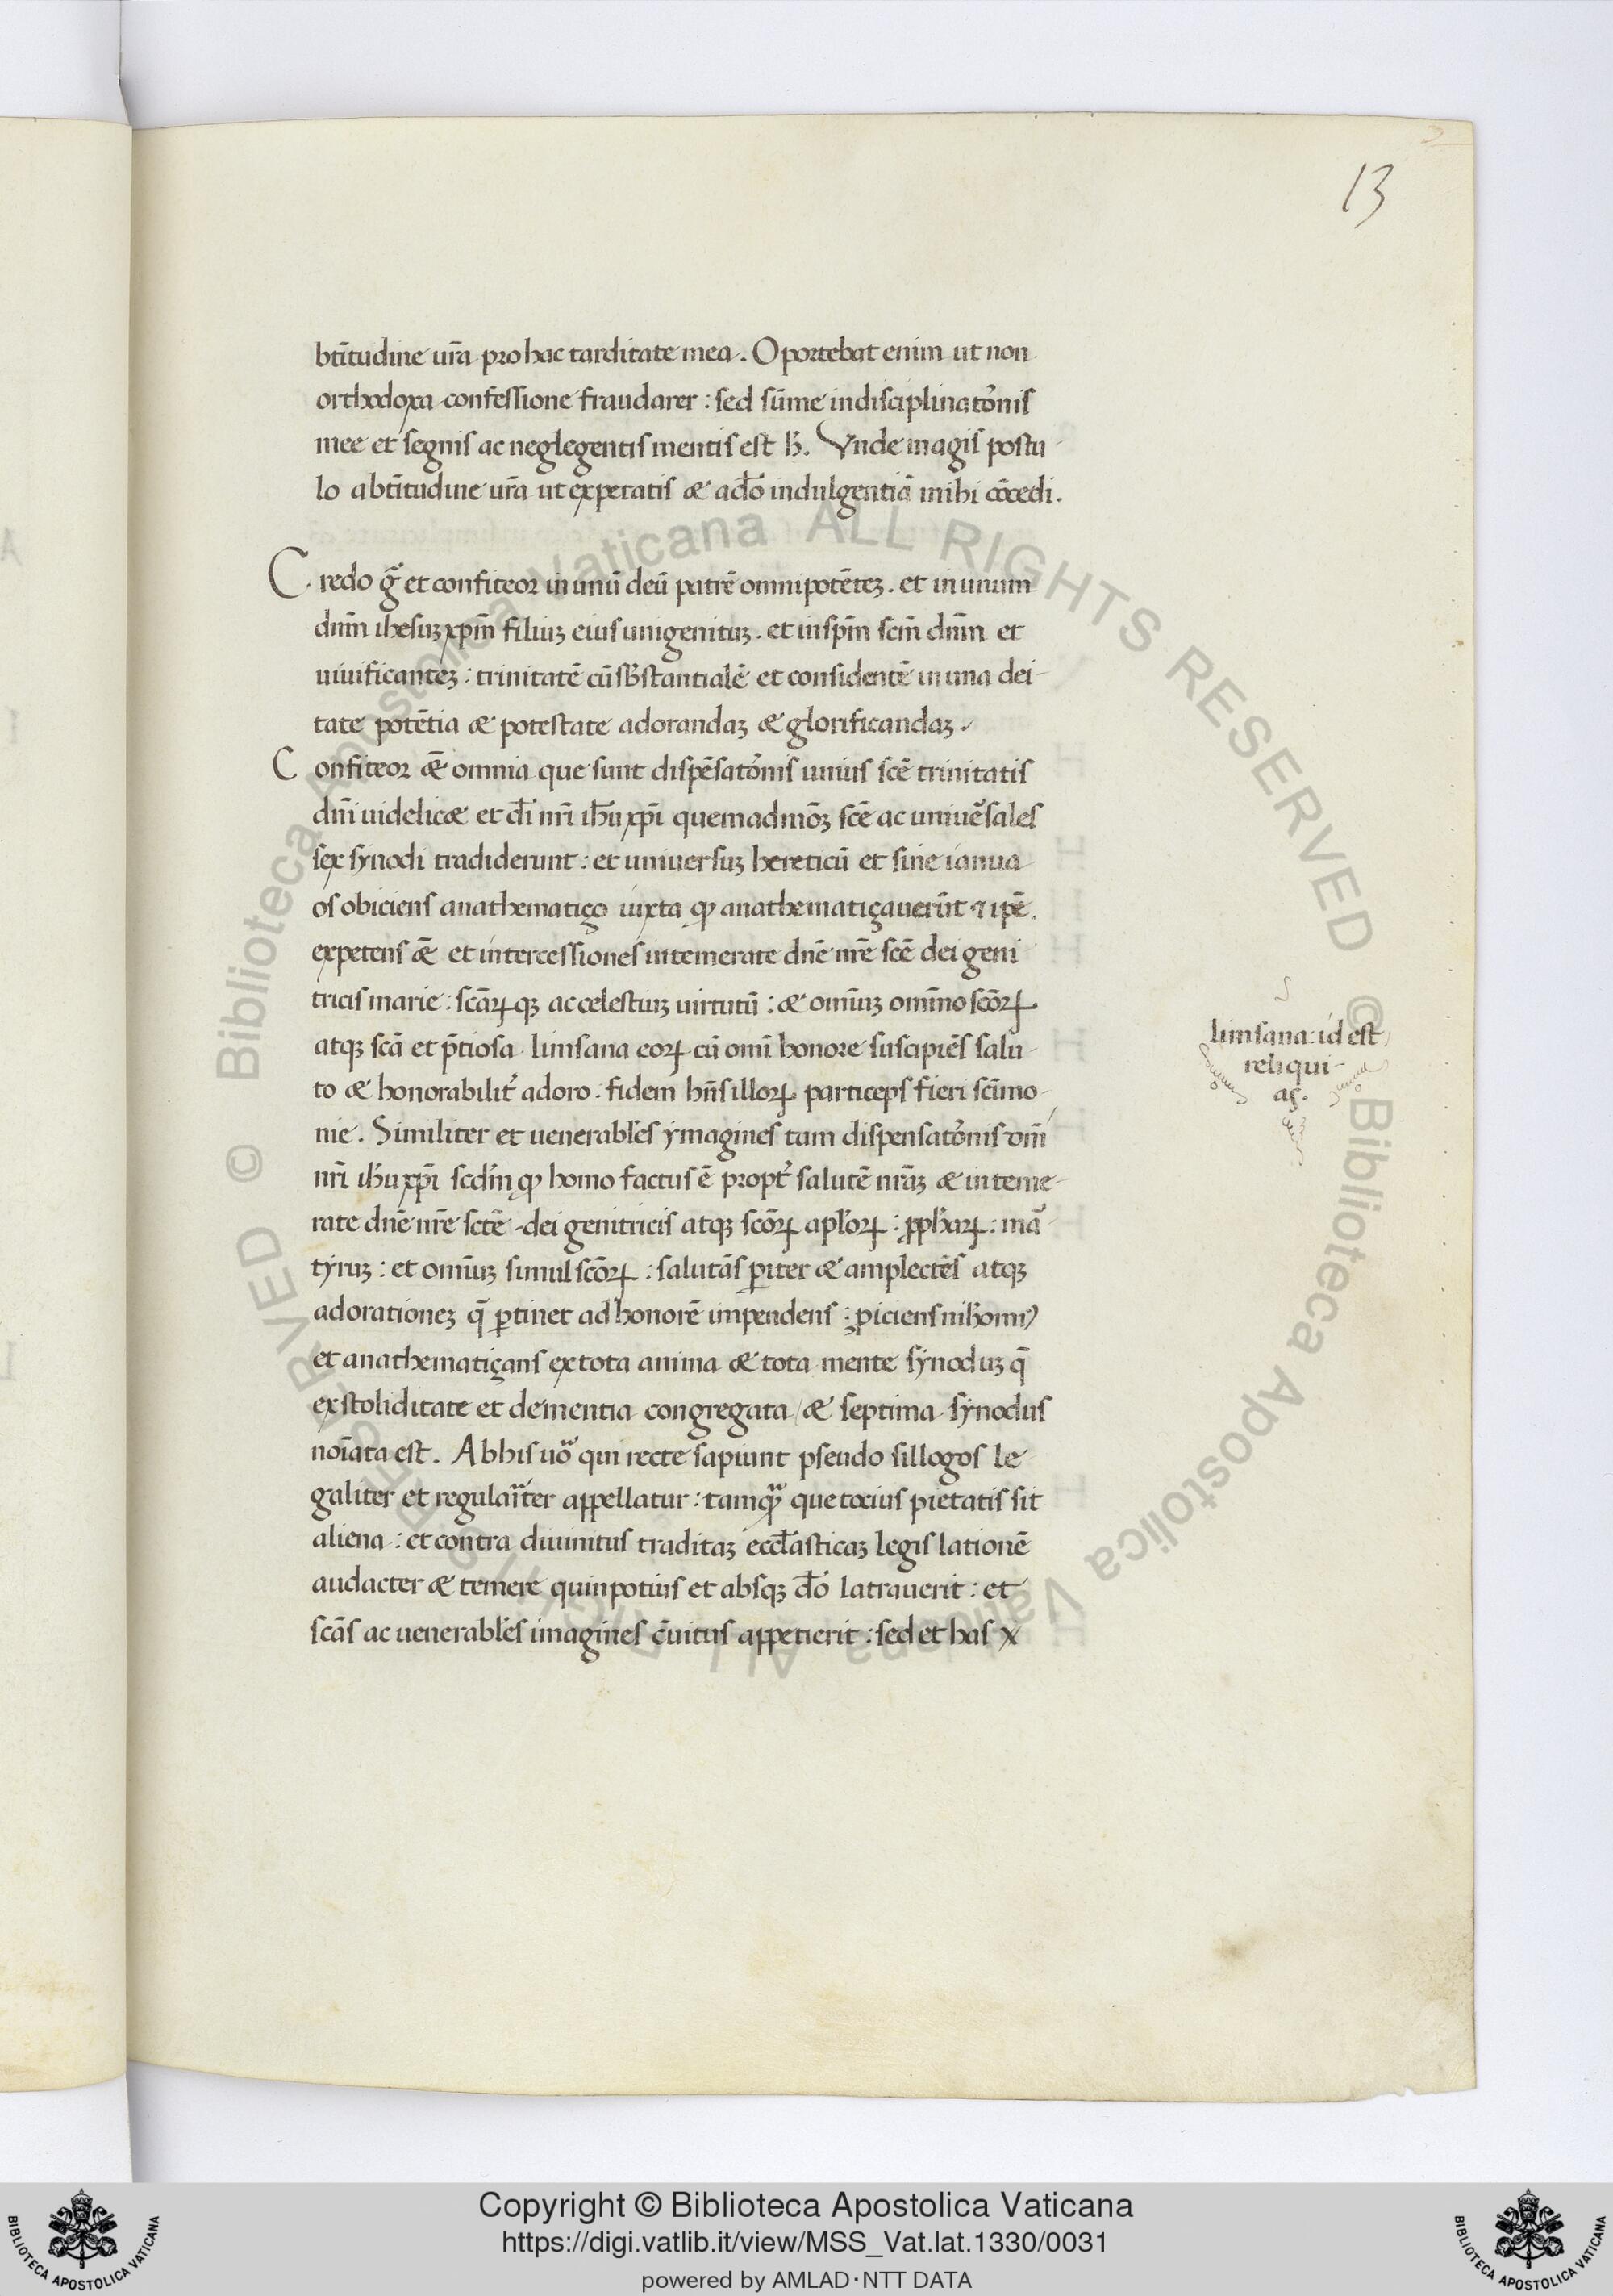 13
btĩtudine ur̃a pro hac tarditate mea. Oportebat enim ut non
orthodoxa confessione fraudarer : sed sũme indisciplinatõnis
mee et segnis ac neglegentis mentis est h̃. Vnde magis postu-
lo a btĩtudine ur̃a ut expetatis & a dõ indulgentiã mihi cõcedi.
Credo g̃ et confiteor in unũ deũ patrẽ omnipotẽteꝫ. et in unum
dnm̃ ihesuꝫ xpm̃ filiuꝫ eius unigenituꝫ. et in spm̃ scm̃ dnm̃ et
uiuificanteꝫ : trinitatẽ cũsb̃stantialẽ et considentẽ in una dei-
tate potẽtia & potestate adorandaꝫ & glorificandaꝫ.
Confiteor &̃ omnia que sunt dispẽsatõnis unius scẽ trinitatis
dnĩ uidelic& et dĩ nrĩ ihũ xpĩ quemadmõꝫ scẽ ac uniuẽsales
sex synodi tradiderunt : et uniuersuꝫ hereticũ et sine ianua
os obiciens anathematiço iuxta ꝙ anathematiçauerũt ⁊ ipẽ.
expetens &̃ et intercessiones intemerate dnẽ nrẽ scẽ dei geni
tricis marie : scãꝝqꝫ ac celestiuꝫ uirtutũ : & omĩuꝫ omĩno scõꝝ
atqꝫ scã et p̃tiosa limsana eoꝝ cũ omĩ honore suscipiẽs salu-
to & honorabilit̃ adoro. fidem hñs illoꝝ particeps fieri scĩmo-
nie. Similiter et uenerabl̃es ymagines tam dispensatõnis dnĩ
nrĩ ihũ xpĩ scdm̃ ꝙ homo factus ẽ propt̃ salutẽ nrãꝫ & inteme-
rate dnẽ nrẽ sctẽ dei genitricis atqꝫ scõꝝ apl̃oꝝ : ꝓph̃aꝝ : mã
tyruꝫ : et omĩuꝫ simul scõꝝ : salutãs ꝑiter & amplectẽs atqꝫ
adorationeꝫ q̃ ꝑtinet ad honorẽ impendens : ꝓiciens
et anathematiçans ex tota anima & tota mente synoduꝫ q̃
ex stoliditate et dementia congregata / & septima synodus
noĩata est. Ab his uõ qui recte sapiunt pseudo sillogos le-
galiter et regular̃iter appellatur : tamꝙ̃ que tocius pietatis sit
aliena : et contra diuinitus traditaꝫ eccl̃asticaꝫ legis lationẽ
audacter & temere quinpotius et absqꝫ dõ latrauerit : et
scãs ac uenerabl̃es imagines cõuitiis appetierit : sed et has
limsana: id est
reliqui-
as.
© Biblioteca Apostolica Vaticana ALL RIGHTS RESERVED © Biblioteca Apostolica Vaticana ALL RIGHTS RESERVED
BIBLIOTECA APOSTOLICA VATICANA
Copyright © Biblioteca Apostolica Vaticana
https://digi.vatlib.it/view/MSS_Vat.lat.1330/0031
powered by AMLAD·NTT DATA
BIBLIOTECA APOSTOLICA VATICANA